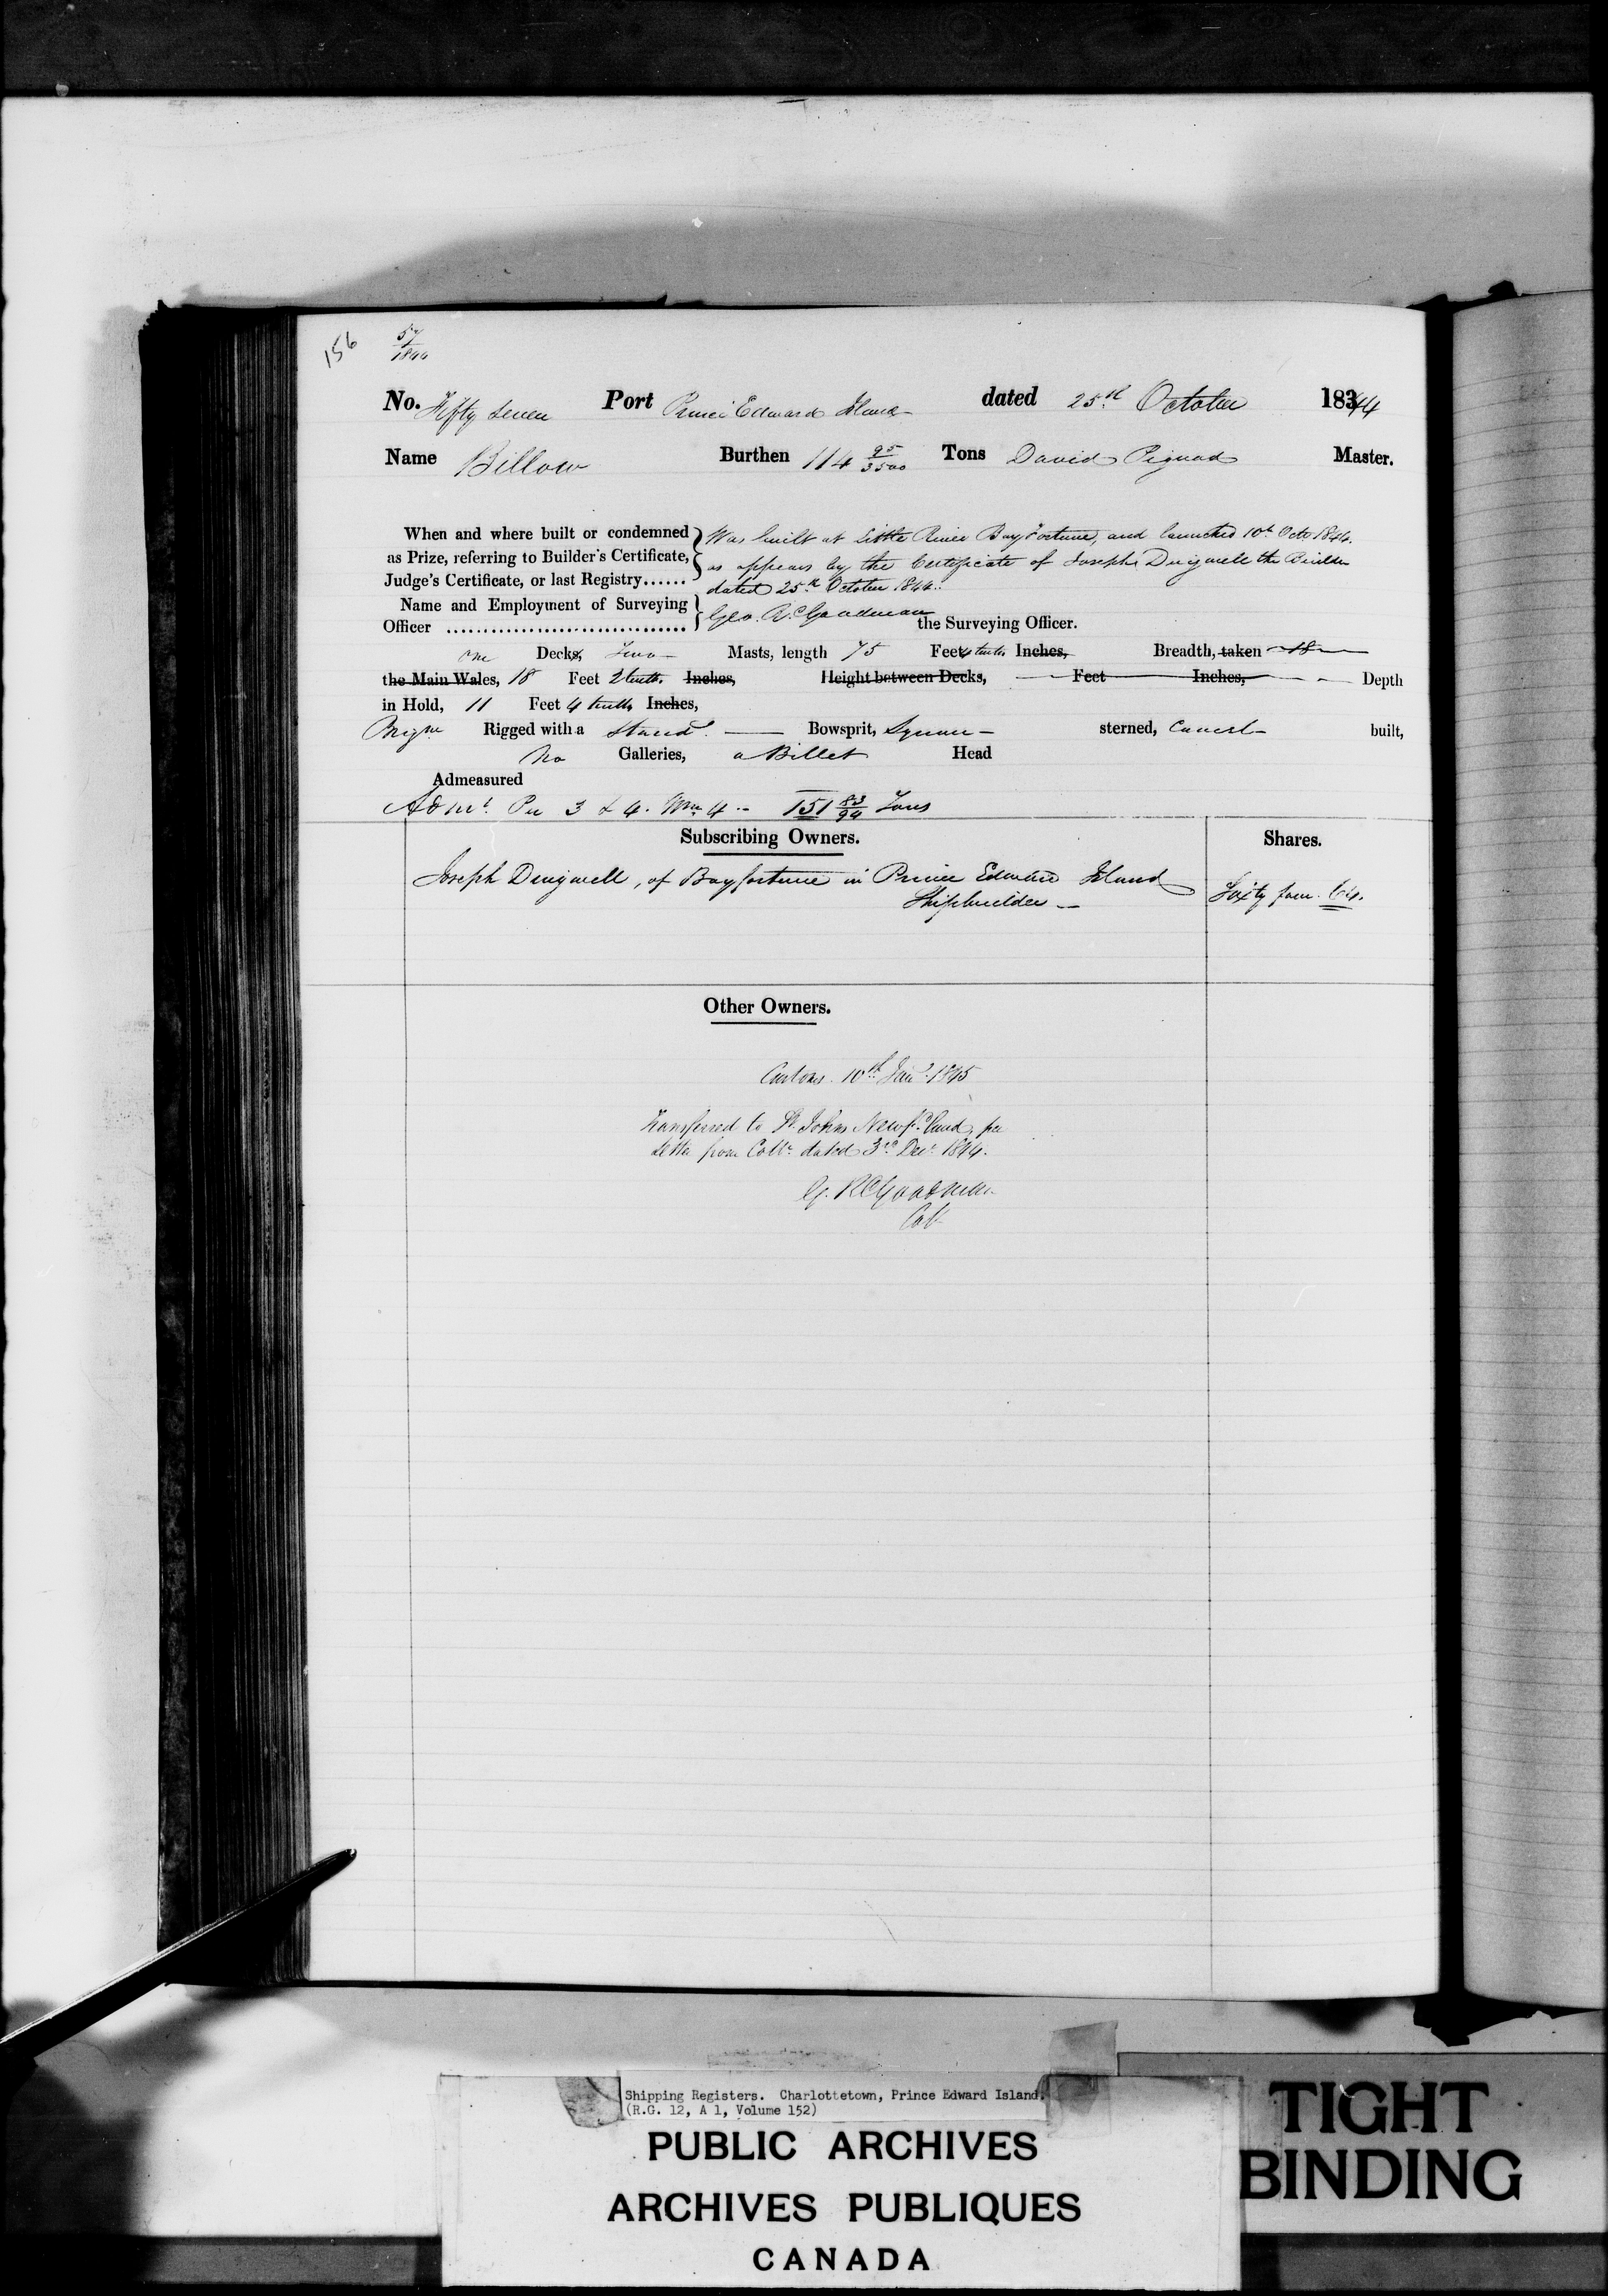 156
57
1844
No. Fifty Seven Port Prince Edward Island dated 25th October 18344
Name Billow Burthen 114 95/3500 Tons David Pignad Master.
When and where built or condemned as Prize, referring to Builder's Certificate, Judge's Certificate, or last Registry......
Was built at Little River Bay Fortune, and launched 10th Octo 1844.
as appears by the Certificate of Joseph Dingwell the Builder
dated 25th October 1844.
Name and Employment of Surveying
Officer ................................ Geo. R. C. Goodman the Surveying Officer.
One Decks, Two Masts, length 75 Feet tenths Inches, Breadth, taken 18
the Main Wales, 18 Feet 2 tenths Inches, Height between Decks, Feet Inches, Depth
in Hold, 11 Feet 4 tenths Inches,
Brigne Rigged with a Stand. Bowsprit, Square sterned, Carvel built,
No Galleries, a Billet Head
Admeasured
Admt. Per 3 & 4. Wm 4. 151 83/94 Tons
Subscribing Owners. Shares.
Joseph Dingwell, of Bay fortune in Prince Edward Island
Shipbuilder Sixty four 64.
Other Owners.
Customs 10th Jany 1845
Transferred to St Johns Newfd land, per
Letter from Collr dated 3rd Decr 1844.
G. R C Goodman
Colr
Shipping Registers. Charlottetown, Prince Edward Island.
(R.G. 12, A 1, Volume 152)
PUBLIC ARCHIVES
ARCHIVES PUBLIQUES
CANADA
TIGHT
BINDING